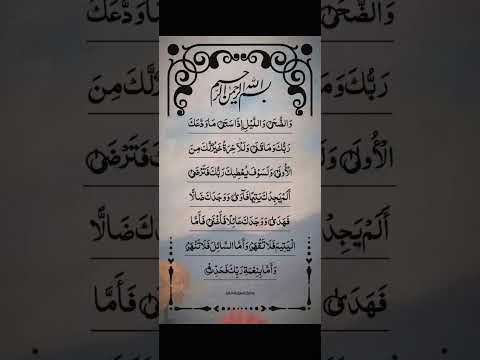 بسم الله الرحمن الرحيم
وَالضُّحَىٰ وَاللَّيْلِ إِذَا سَجَىٰ مَا وَدَّعَكَ
رَبُّكَ وَمَا قَلَىٰ وَلَلْآخِرَةُ خَيْرٌ لَّكَ مِنَ
الْأُولَىٰ وَلَسَوْفَ يُعْطِيكَ رَبُّكَ فَتَرْضَىٰ
أَلَمْ يَجِدْكَ يَتِيمًا فَآوَىٰ وَوَجَدَكَ ضَالًّا
فَهَدَىٰ وَوَجَدَكَ عَائِلًا فَأَغْنَىٰ فَأَمَّا
الْيَتِيمَ فَلَا تَقْهَرْ وَأَمَّا السَّائِلَ فَلَا تَنْهَرْ
وَأَمَّا بِنِعْمَةِ رَبِّكَ فَحَدِّثْ